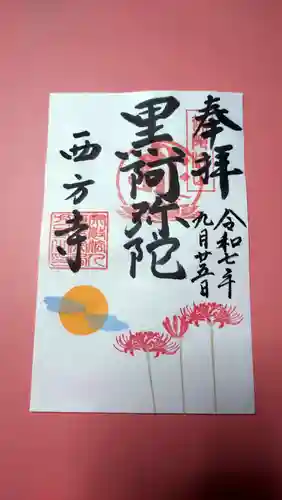 奉拝
令和七年
九月廿五日
黒阿弥陀
西方寺